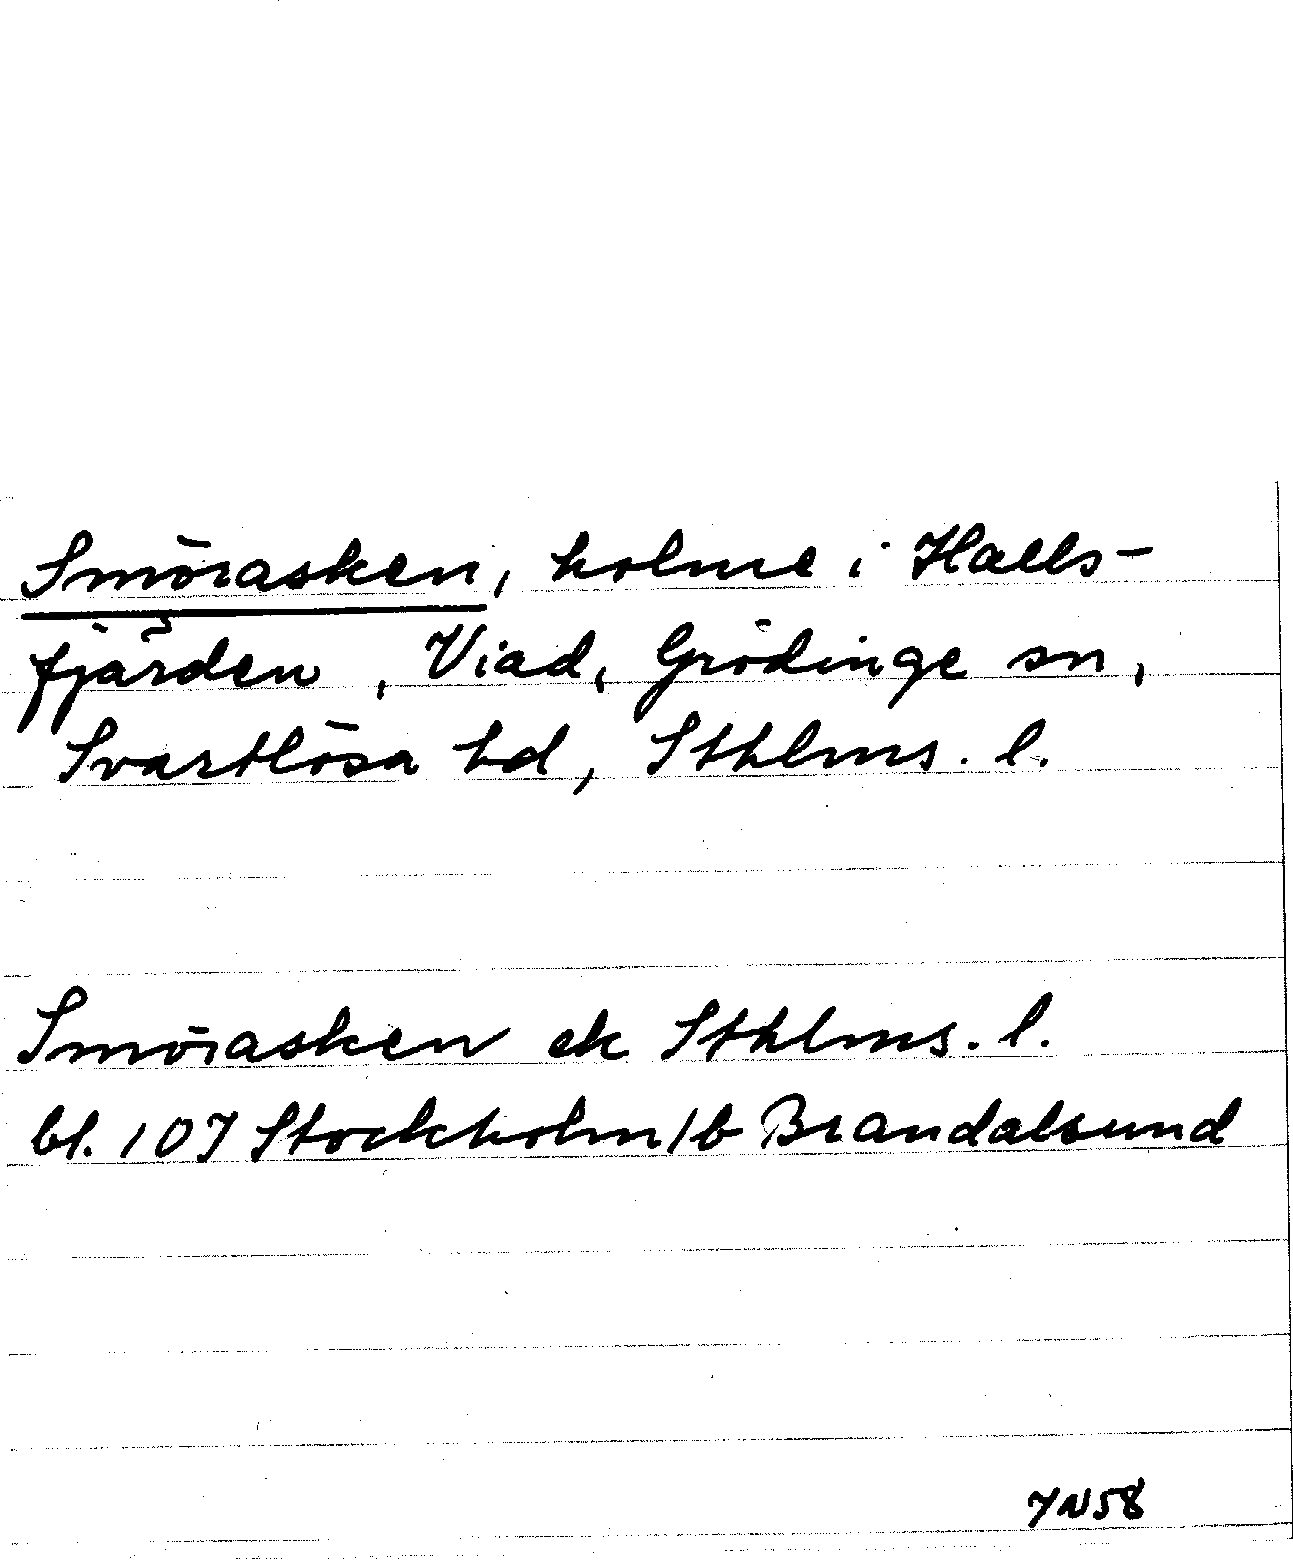 Smörasken, holme i Halls-
fjärden, Viad, Grödinge sn,
Svartlösa hd, Sthlms. l.
Smörasken ek Sthlms. l.
bl. 107 Stockholm/b Brandalsund
YN58